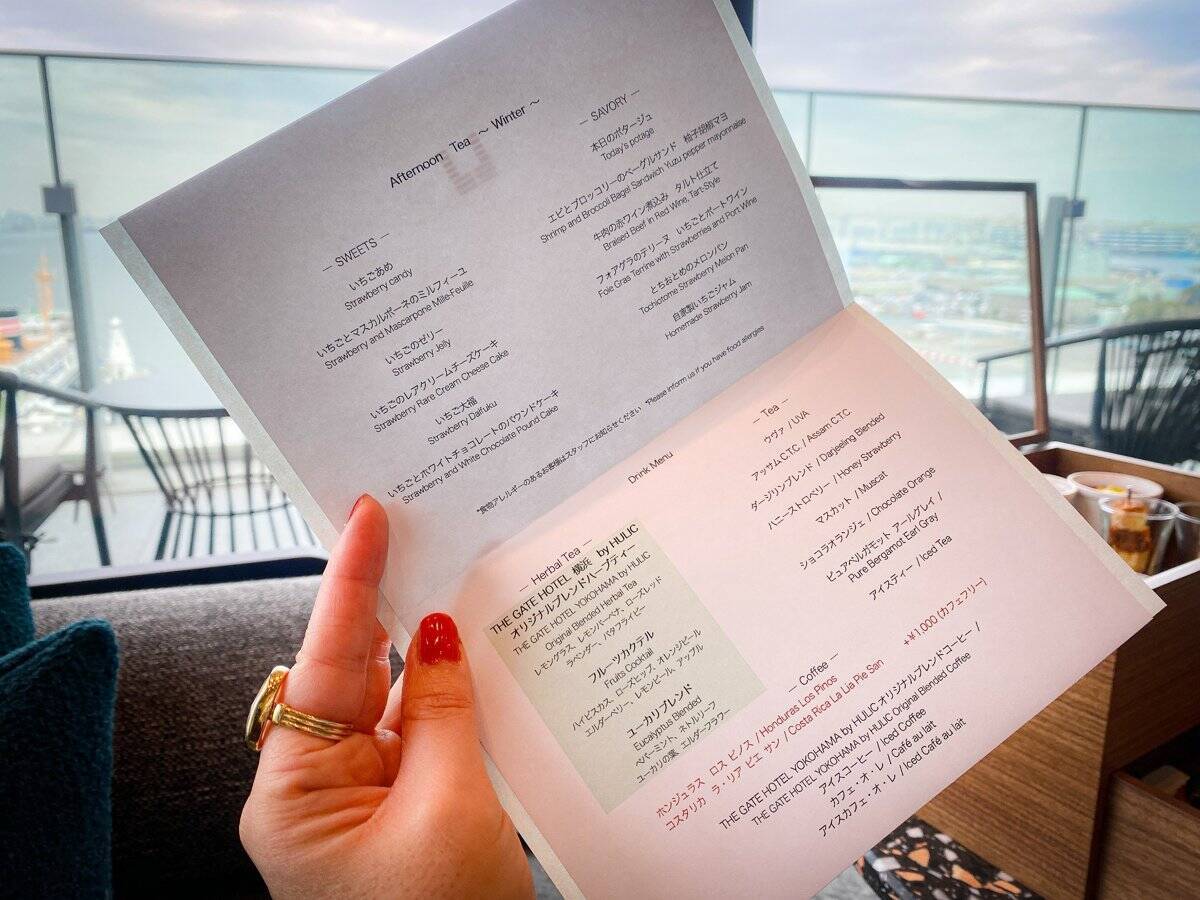 Afternoon Tea ～ Winter ～
— SWEETS —
いちごあめ
Strawberry candy
いちごとマスカルポーネのミルフィーユ
Strawberry and Mascarpone Mille-Feuille
いちごのゼリー
Strawberry Jelly
いちごのレアクリームチーズケーキ
Strawberry Rare Cream Cheese Cake
いちご大福
Strawberry Daifuku
いちごとホワイトチョコレートのパウンドケーキ
Strawberry and White Chocolate Pound Cake
— SAVORY —
本日のポタージュ
Today's potage
エビとブロッコリーのベーグルサンド 柚子胡椒マヨ
Shrimp and Broccoli Bagel Sandwich Yuzu pepper mayonnaise
牛肉の赤ワイン煮込み タルト仕立て
Braised Beef in Red Wine, Tart-Style
フォアグラのテリーヌ いちごとポートワイン
Foie Gras Terrine with Strawberries and Port Wine
とちおとめのメロンパン
Tochiotome Strawberry Melon Pan
自家製いちごジャム
Homemade Strawberry Jam
*食物アレルギーのあるお客様はスタッフにお知らせください *Please inform us if you have food allergies
Drink Menu
— Herbal Tea —
THE GATE HOTEL 横浜 by HULIC
オリジナルブレンドハーブティー
THE GATE HOTEL YOKOHAMA by HULIC
Original Blended Herbal Tea
レモングラス、レモンバーベナ、ローズレッド
ラベンダー、バタフライピー
フルーツカクテル
Fruits Cocktail
ハイビスカス、ローズヒップ、オレンジピール
エルダーベリー、レモンピール、アップル
ユーカリブレンド
Eucalyptus Blended
ペパーミント、ネトルリーフ
ユーカリの葉、エルダーフラワー
— Tea —
ウヴァ / UVA
アッサムC.T.C. / Assam C.T.C.
ダージリンブレンド / Darjeeling Blended
ハニーストロベリー / Honey Strawberry
マスカット / Muscat
ショコラオランジェ / Chocolate Orange
ピュアベルガモット アールグレイ /
Pure Bergamot Earl Gray
アイスティー / Iced Tea
— Coffee —
+¥1,000 (カフェフリー)
ホンジュラス ロス ピノス / Honduras Los Pinos
コスタリカ ラ・リア ピエ サン / Costa Rica La Lia Pie San
THE GATE HOTEL YOKOHAMA by HULIC オリジナルブレンドコーヒー /
THE GATE HOTEL YOKOHAMA by HULIC Original Blended Coffee
アイスコーヒー / Iced Coffee
カフェ・オ・レ / Café au lait
アイスカフェ・オ・レ / Iced Café au lait